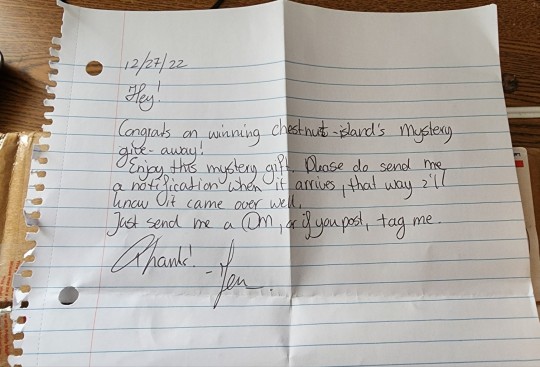 12/27/22
Hey!
Congrats on winning chestnut-island's Mystery
give-away!
Enjoy this mystery gift. Please do send me
a notification when it arrives, that way I'll
know it came over well.
Just send me a DM, or if you post, tag me.
Thanks!
-Jen.